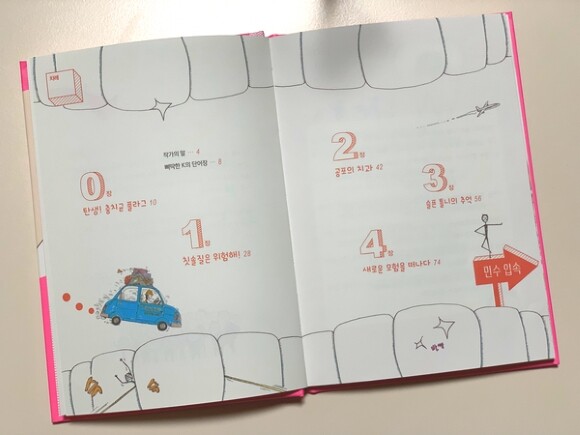 차례
작가의 말 … 4
삐딱한 K의 단어장 … 8
0장
탄생! 충치균 플라그 10
1장
칫솔질은 위험해! 28
2장
공포의 치과 42
3장
슬픈 틀니의 추억 58
4장
새로운 모험을 떠나다 74
민수 입속
반짝